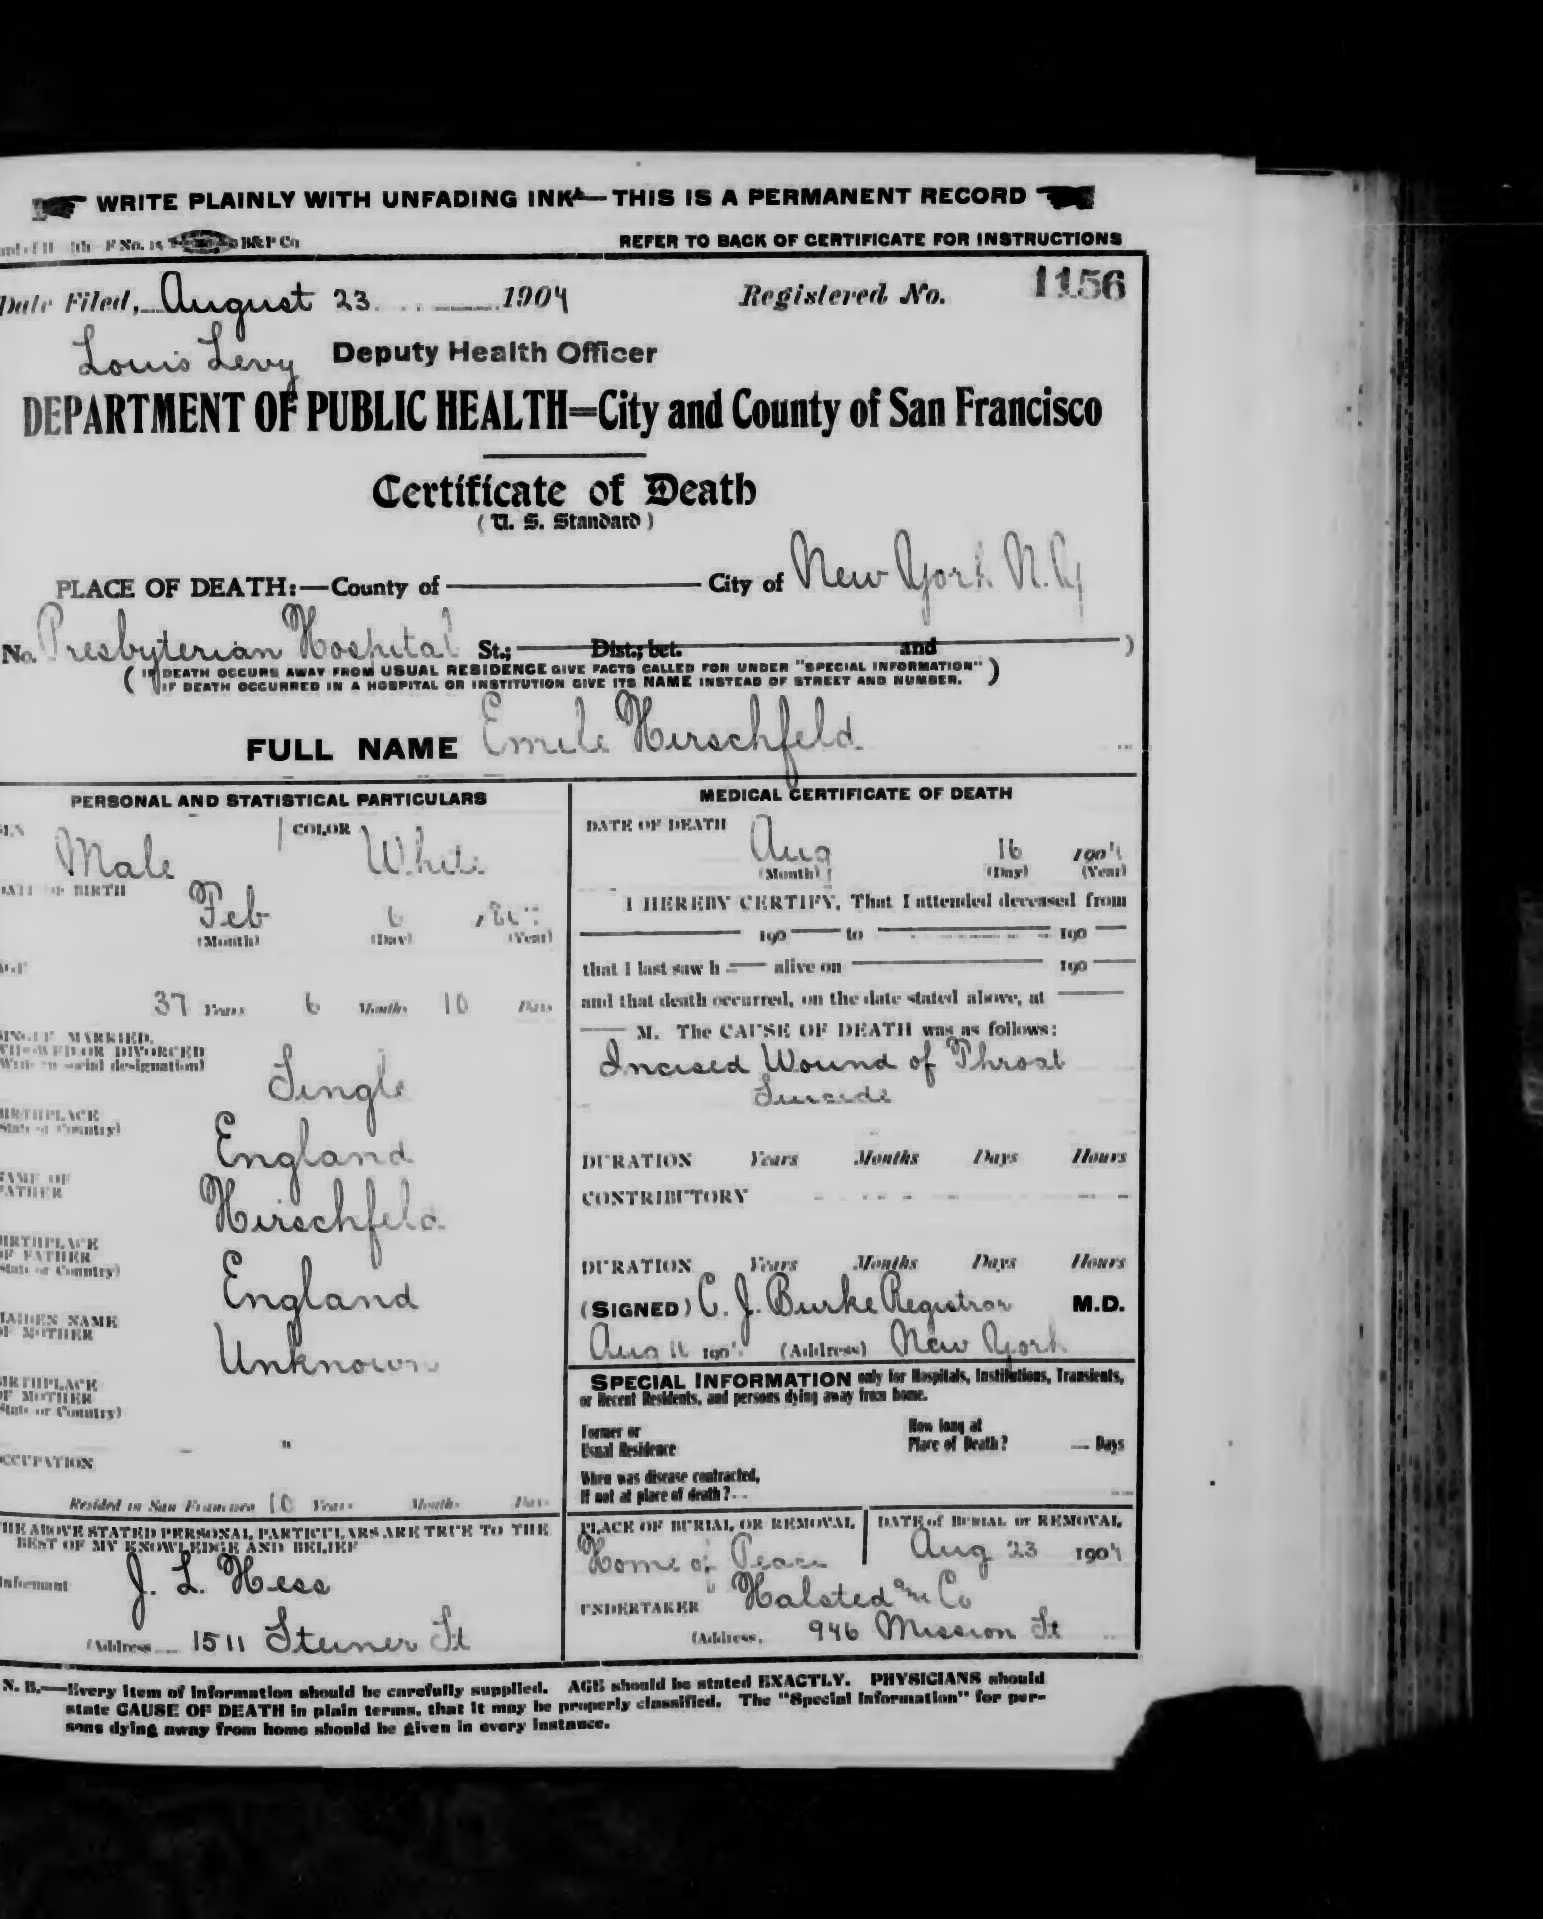 WRITE PLAINLY WITH UNFADING INK — THIS IS A PERMANENT RECORD
F No. 15 B&P Co
REFER TO BACK OF CERTIFICATE FOR INSTRUCTIONS
Date Filed, August 23 1904 Registered No. 1156
Louis Levy Deputy Health Officer
DEPARTMENT OF PUBLIC HEALTH=City and County of San Francisco
Certificate of Death
(U. S. Standard)
PLACE OF DEATH:—County of City of New York N.Y
No. Presbyterian Hospital St.; Dist.; bet. and )
( IF DEATH OCCURS AWAY FROM USUAL RESIDENCE GIVE FACTS CALLED FOR UNDER "SPECIAL INFORMATION" )
IF DEATH OCCURRED IN A HOSPITAL OR INSTITUTION GIVE ITS NAME INSTEAD OF STREET AND NUMBER.
FULL NAME Emile Hirschfeld
PERSONAL AND STATISTICAL PARTICULARS
SEX Male COLOR White
DATE OF BIRTH Feb 6
(Month) (Day) (Year)
AGE
37 Years 6 Months 10 Days
SINGLE, MARRIED,
WIDOWED OR DIVORCED
(Write in social designation)
Single
BIRTHPLACE
(State or Country)
England
NAME OF
FATHER
Hirschfeld
BIRTHPLACE
OF FATHER
(State or Country)
England
MAIDEN NAME
OF MOTHER
Unknown
BIRTHPLACE
OF MOTHER
(State or Country)
"
OCCUPATION
Resided in San Francisco 10 Years Months Days
THE ABOVE STATED PERSONAL PARTICULARS ARE TRUE TO THE
BEST OF MY KNOWLEDGE AND BELIEF
Informant J. L. Hess
(Address 1511 Steiner St
MEDICAL CERTIFICATE OF DEATH
DATE OF DEATH
Aug 16 1904
(Month) (Day) (Year)
I HEREBY CERTIFY, That I attended deceased from
190 to 190
that I last saw h alive on 190
and that death occurred, on the date stated above, at
M. The CAUSE OF DEATH was as follows:
Incised Wound of Throat
Suicide
DURATION Years Months Days Hours
CONTRIBUTORY
DURATION Years Months Days Hours
(SIGNED) C. J. Burke Registrar M.D.
Aug 190 (Address) New York
SPECIAL INFORMATION only for Hospitals, Institutions, Transients,
or Recent Residents, and persons dying away from home.
Former or
Usual Residence
How long at
Place of Death? Days
When was disease contracted,
If not at place of death?
PLACE OF BURIAL OR REMOVAL
Home of Peace
DATE of BURIAL or REMOVAL
Aug 23 1904
UNDERTAKER Halsted and Co
(Address, 946 Mission St
N. B.—Every item of information should be carefully supplied. AGE should be stated EXACTLY. PHYSICIANS should
state CAUSE OF DEATH in plain terms, that it may be properly classified. The "Special Information" for per-
sons dying away from home should be given in every instance.